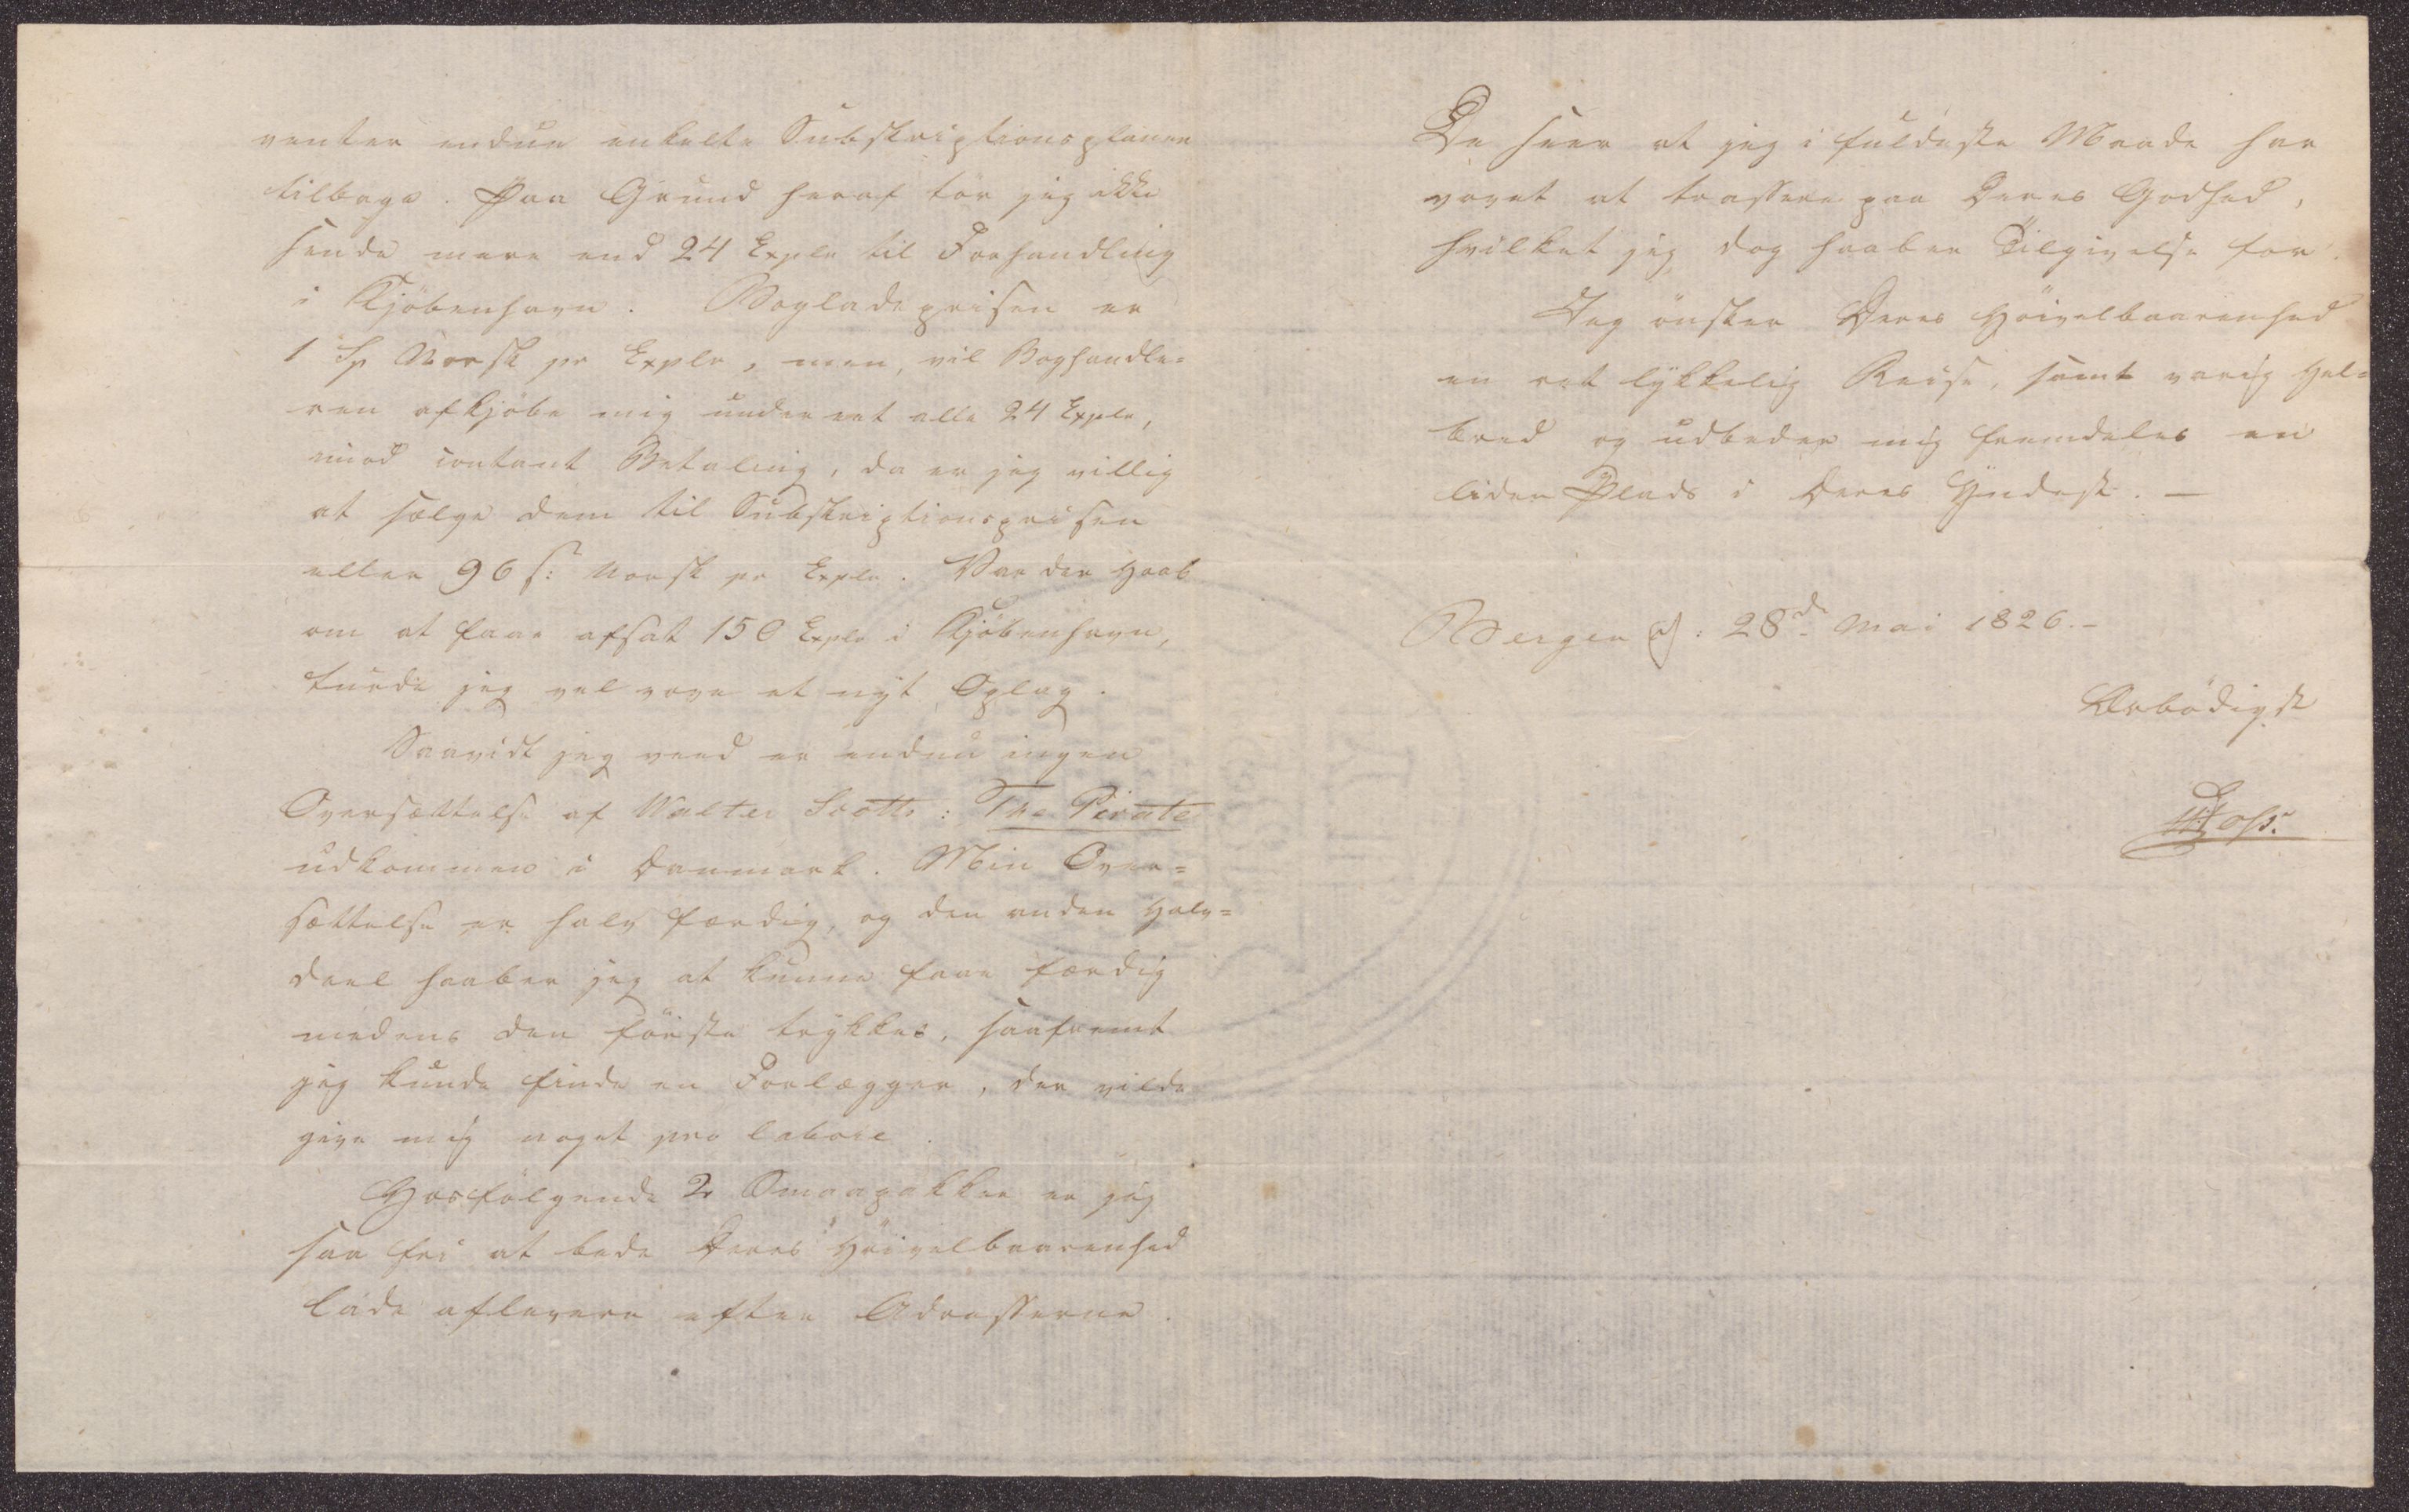 venter endnu enkelte Subskriptionsplaner
tilbage. Paa Grund heraf tör jeg ikke
sende mere end 24 Explr til Forhandling
i Kjöbenhavn. Bogladeprisen er
1 Sp Norsk pr Explr, men, vil Boghandle=
ren afkjöbe mig under eet alle 24 Explr,
mod contant Betaling, da er jeg villig
at sælge dem til Subskriptionsprisen
eller 96 s: Norsk pr Explr. Var der Haab
om at faae afsat 150 Explr i Kjöbenhavn,
turde jeg vel vove et nyt Oplag.
Saavidt jeg veed er endnu ingen
Oversættelse af Walter Scotts: The Pirate
udkommen i Danmark. Min Over=
sættelse er halv færdig, og den anden Halv=
deel haaber jeg at kunne faae færdig
medens den förste trykkes, saafremt
jeg kunde finde en Forlægger, der vilde
give mig noget pro labore.
Hosfölgende 2 Smaapakker er jeg
saa fri at bede Deres Höivelbaarenhed
lade aflevere efter Adresserne.
De seer at jeg i fuldeste Maade har
vovet at trassere paa Deres Godhed,
hvilket jeg dog haaber Tilgivelse for.
Jeg önsker Deres Höivelbaarenhed
en ret lykkelig Reise, samt varig Hel=
bred og udbeder mig fremdeles en
liden Plads i Deres Yndest. —
Bergen d: 28de Mai 1826.-
Ærbödigst